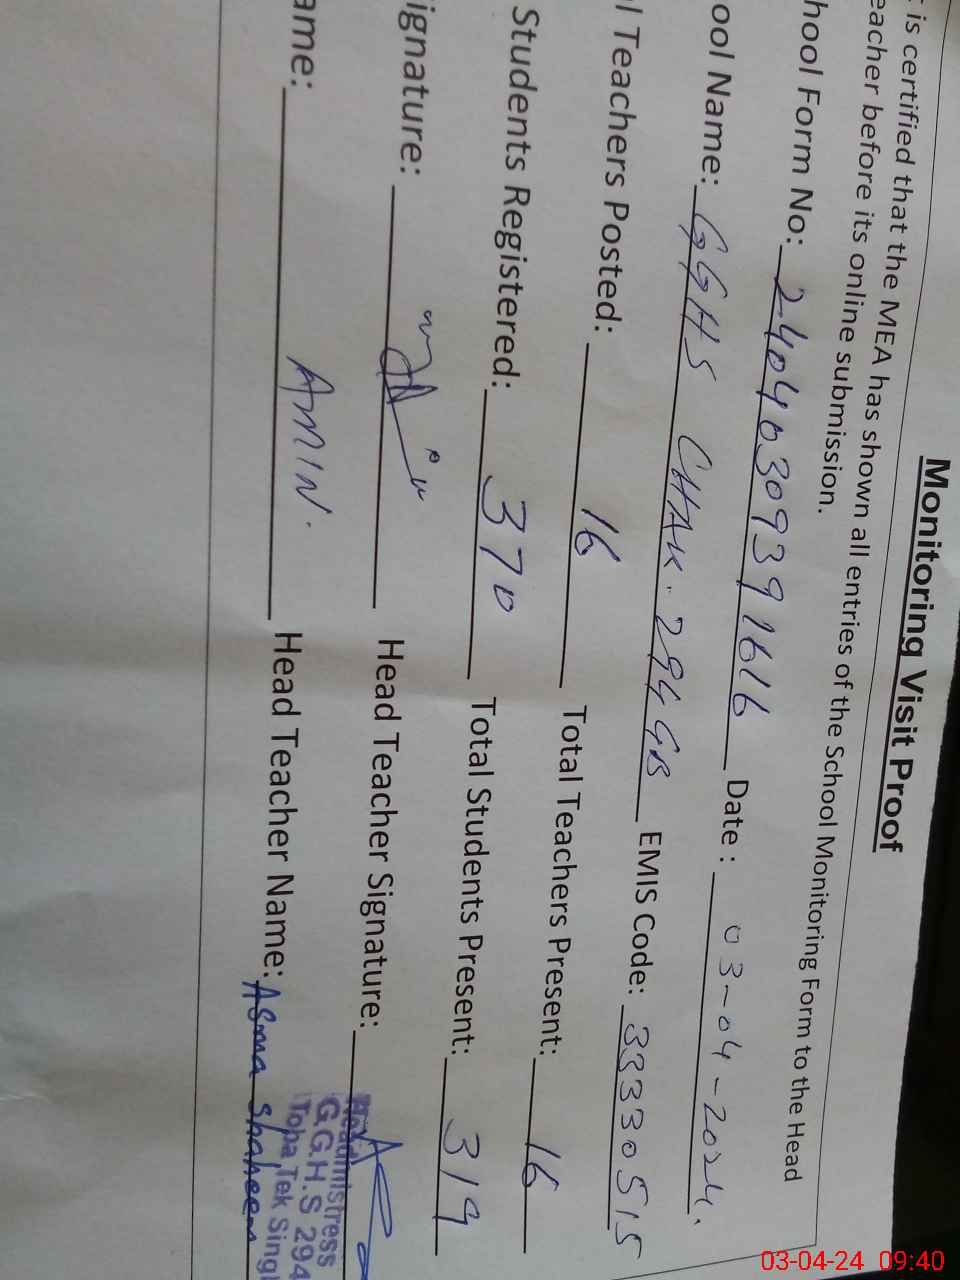 Monitoring Visit Proof
is certified that the MEA has shown all entries of the School Monitoring Form to the Head
eacher before its online submission.
hool Form No: 24040309391616 Date : 03-04-2024.
ool Name: GGHS CHAK. 294 GB EMIS Code: 33330515
l Teachers Posted: 16 Total Teachers Present: 16
Students Registered: 370 Total Students Present: 319
ignature: Head Teacher Signature:
ame: AMIN. Head Teacher Name: Asma Shaheen
Headmistress
G.G.H.S 294
Toba Tek Singh
03-04-24 09:40